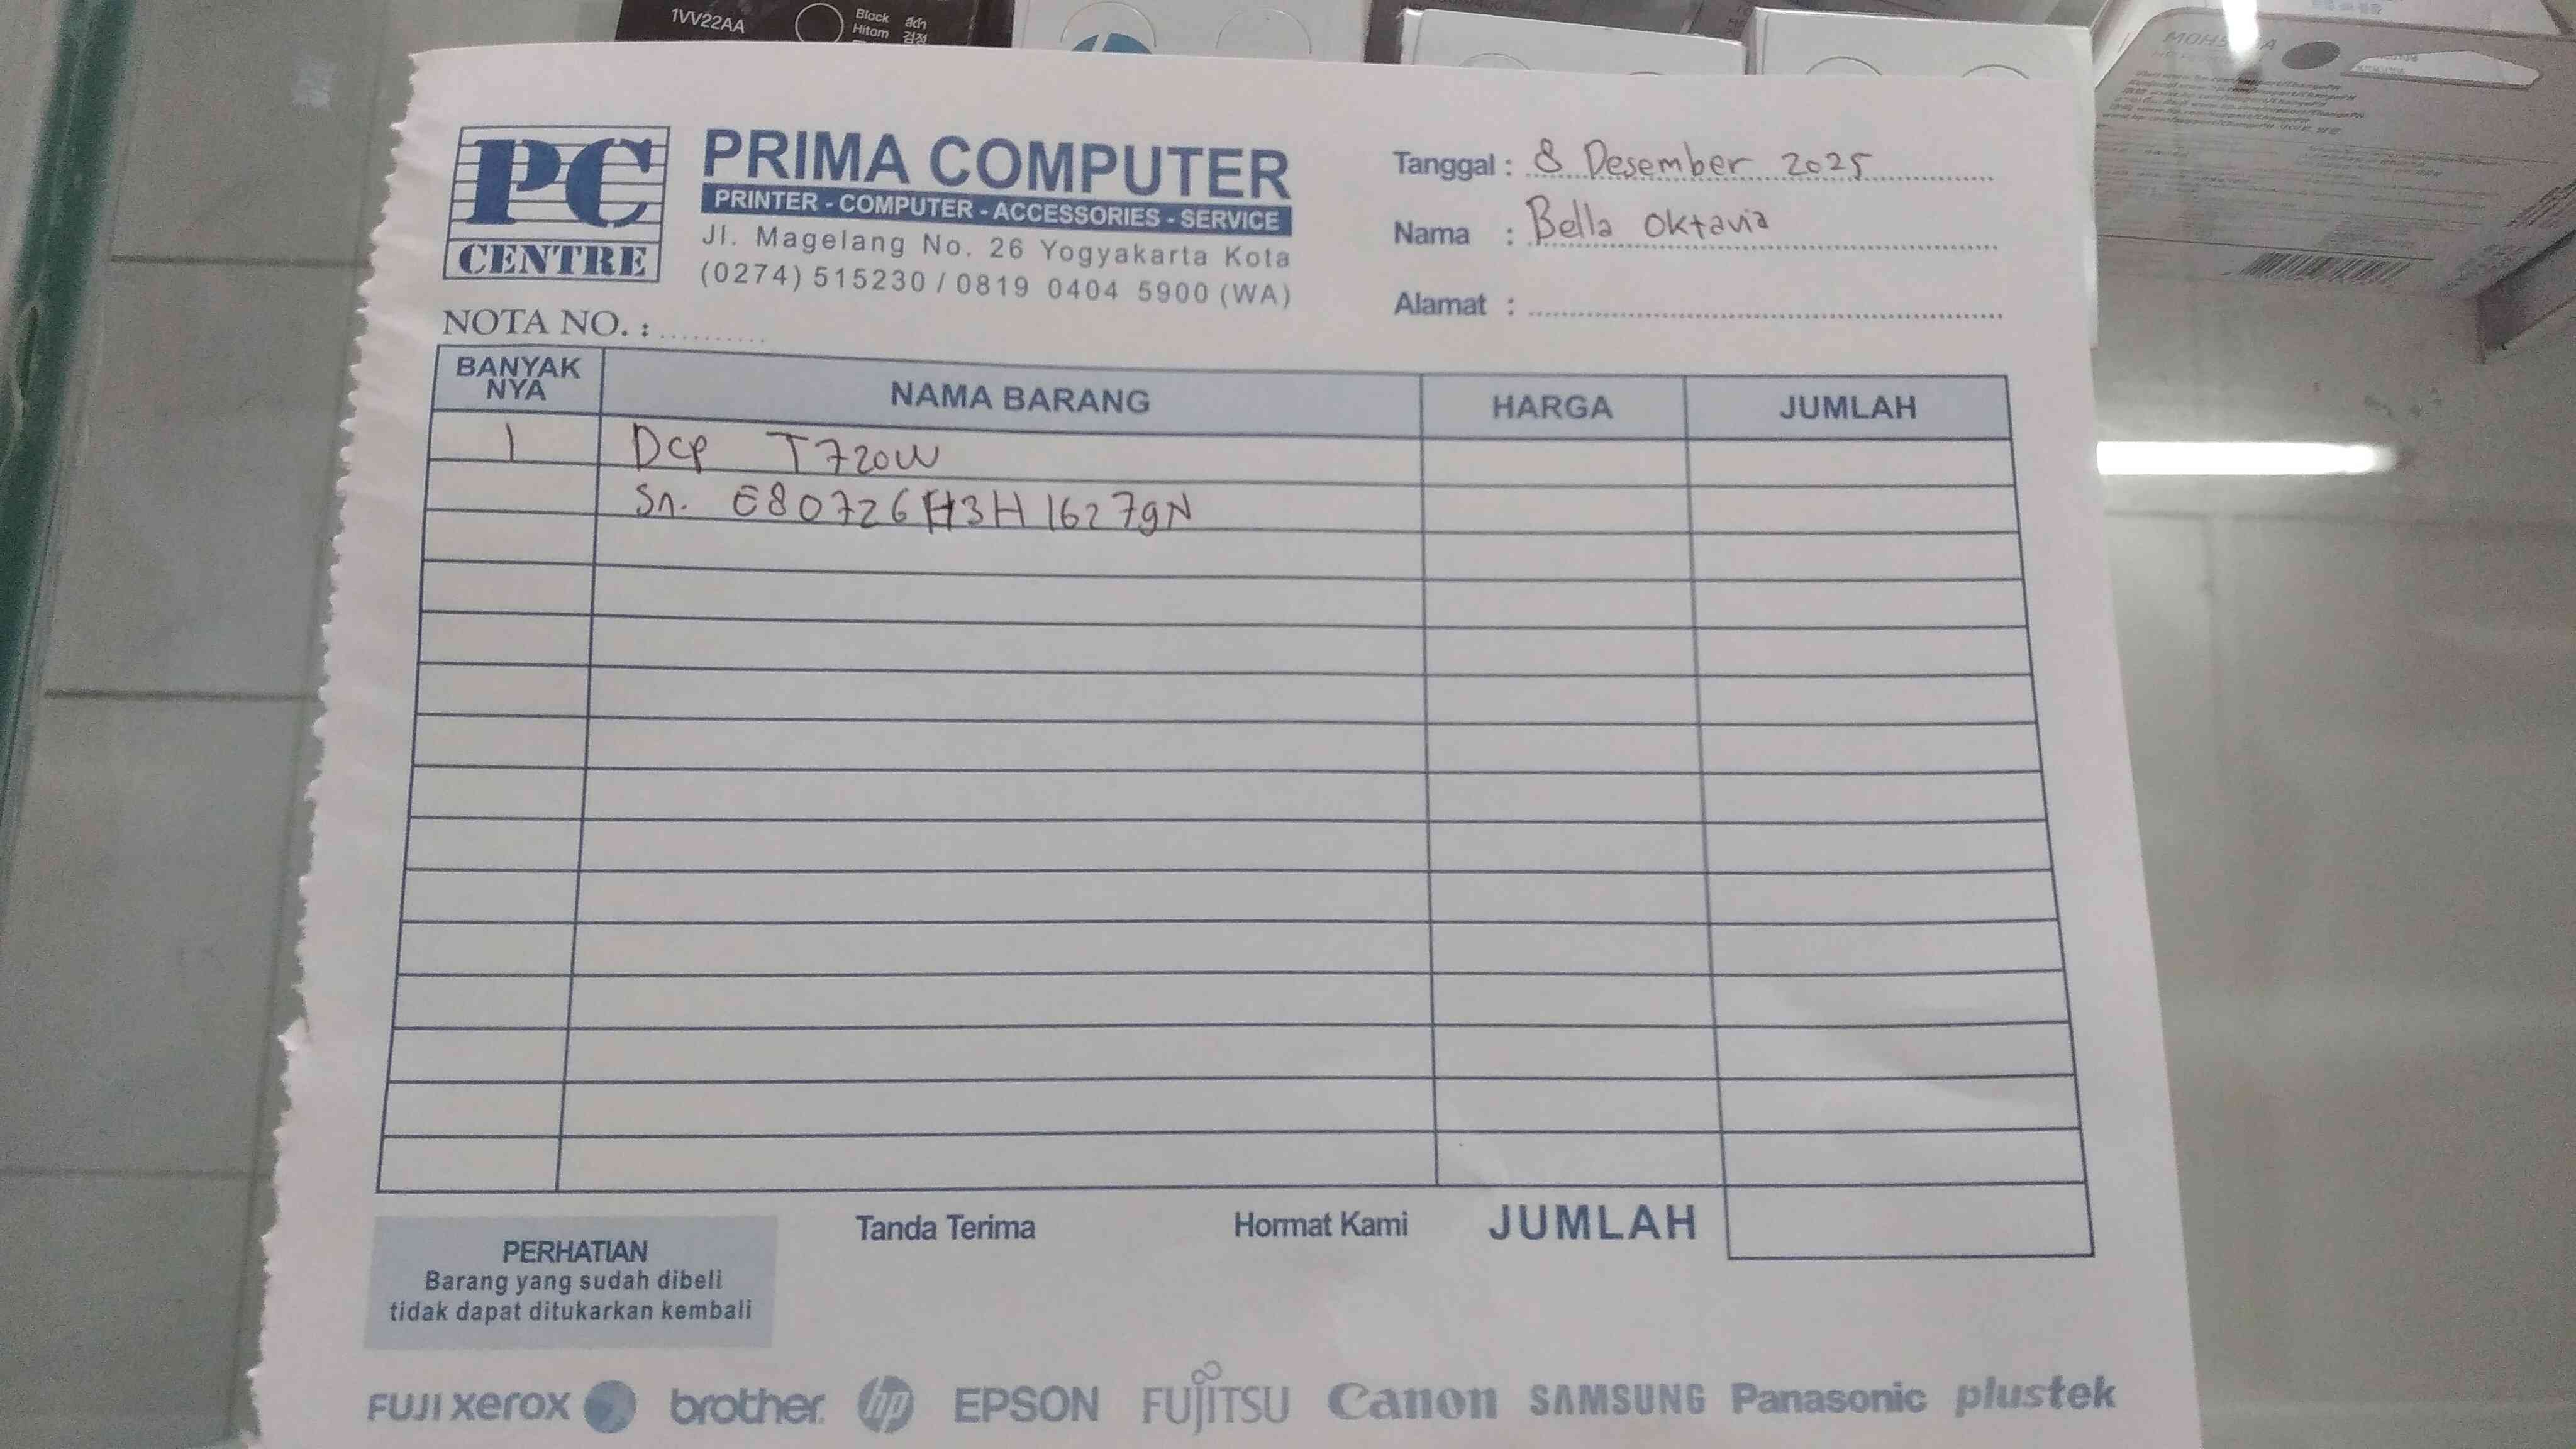 1VV22AA
Black
Hitam
สีดำ
검정
PC
CENTRE
PRIMA COMPUTER
PRINTER - COMPUTER - ACCESSORIES - SERVICE
Jl. Magelang No. 26 Yogyakarta Kota
(0274) 515230 / 0819 0404 5900 (WA)
Tanggal : 8 Desember 2025
Nama : Bella Oktavia
Alamat :
NOTA NO. :
BANYAK NYA NAMA BARANG HARGA JUMLAH
1 Dcp T720W
Sn. E80726H3H16279N
Tanda Terima Hormat Kami JUMLAH
PERHATIAN
Barang yang sudah dibeli
tidak dapat ditukarkan kembali
FUJI xerox brother hp EPSON FUJITSU Canon SAMSUNG Panasonic plustek